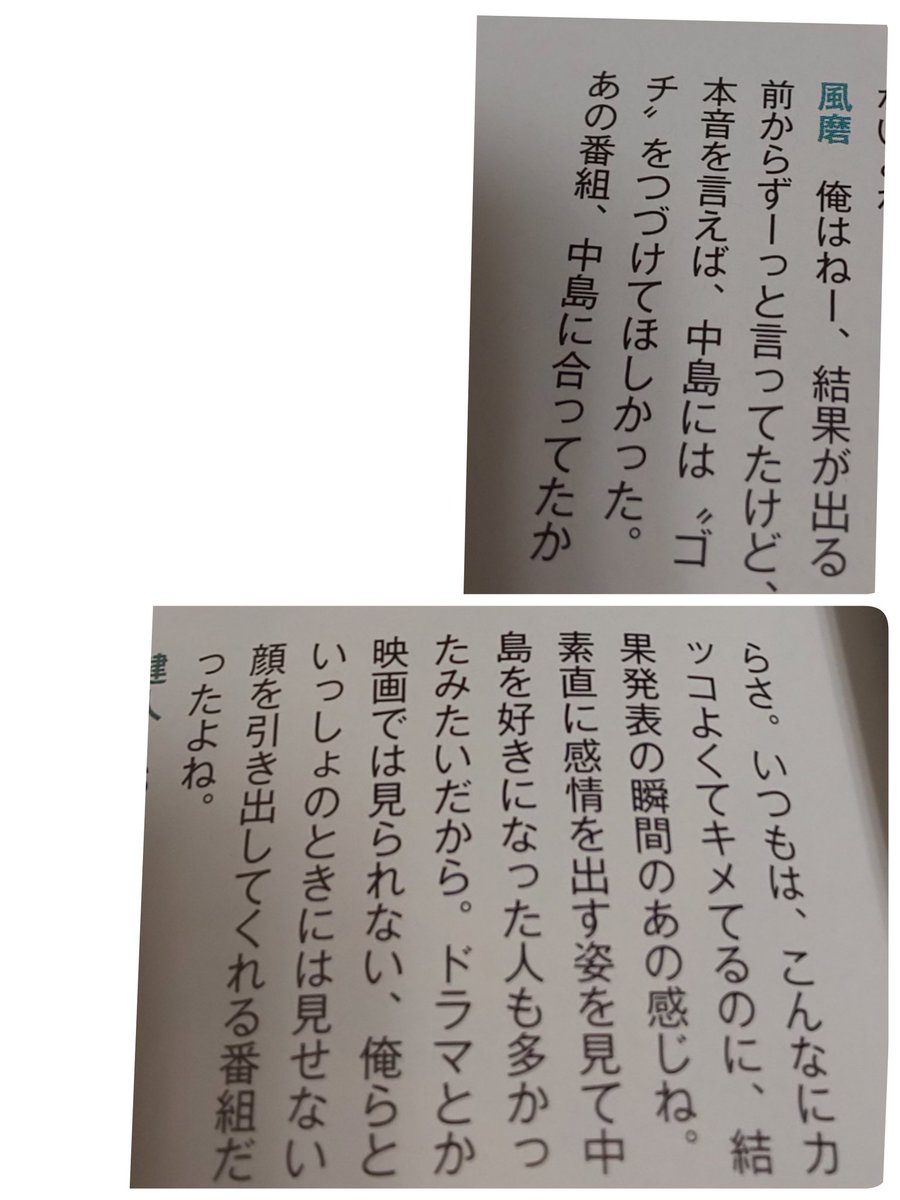 風磨　俺はねー、結果が出る
前からずーっと言ってたけど、
本音を言えば、中島には〝ゴ
チ〟をつづけてほしかった。
あの番組、中島に合ってたか
らさ。いつもは、こんなにカ
ッコよくてキメてるのに、結
果発表の瞬間のあの感じね。
素直に感情を出す姿を見て中
島を好きになった人も多かっ
たみたいだから。ドラマとか
映画では見られない、俺らと
いっしょのときには見せない
顔を引き出してくれる番組だ
ったよね。